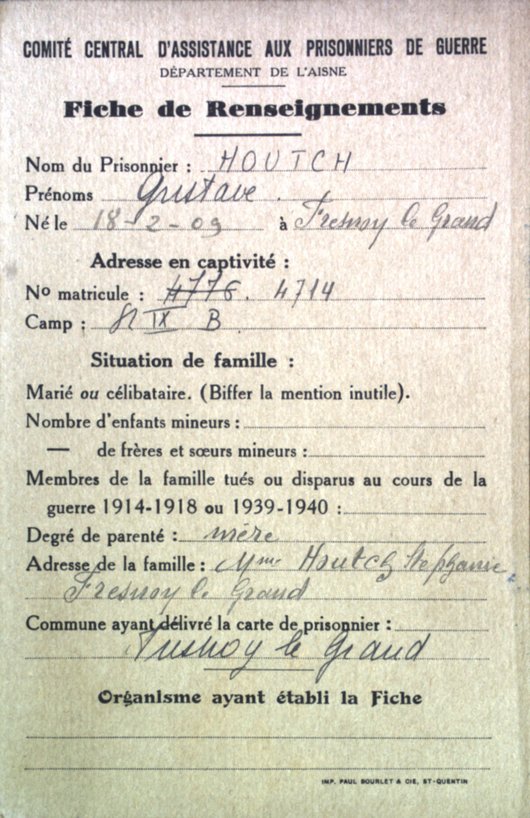 COMITÉ CENTRAL D'ASSISTANCE AUX PRISONNIERS DE GUERRE
DÉPARTEMENT DE L'AISNE
Fiche de Renseignements
Nom du Prisonnier : HOUTCH
Prénoms Gustave.
Né le 18-2-09 à Fresnoy le Grand
Adresse en captivité :
No matricule : 4776. 4714
Camp : St IX B
Situation de famille :
Marié ou célibataire. (Biffer la mention inutile).
Nombre d'enfants mineurs :
— de frères et sœurs mineurs :
Membres de la famille tués ou disparus au cours de la
guerre 1914-1918 ou 1939-1940 :
Degré de parenté : mère
Adresse de la famille : Mme Houtch Stephanie
Fresnoy le Grand
Commune ayant délivré la carte de prisonnier :
Fresnoy le Grand
Organisme ayant établi la Fiche
IMP. PAUL BOURLET & CIE, ST-QUENTIN